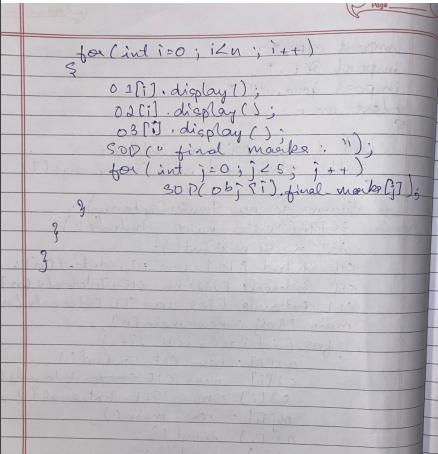 Page
for (int i=0 ; i<n ; i++)
{
O1[i].display();
O2[i].display();
O3[i].display();
SOP(" final marks : ");
for (int j=0 ; j<5 ; j++)
SOP(obj[i].final_marks[j]);
}
}
}